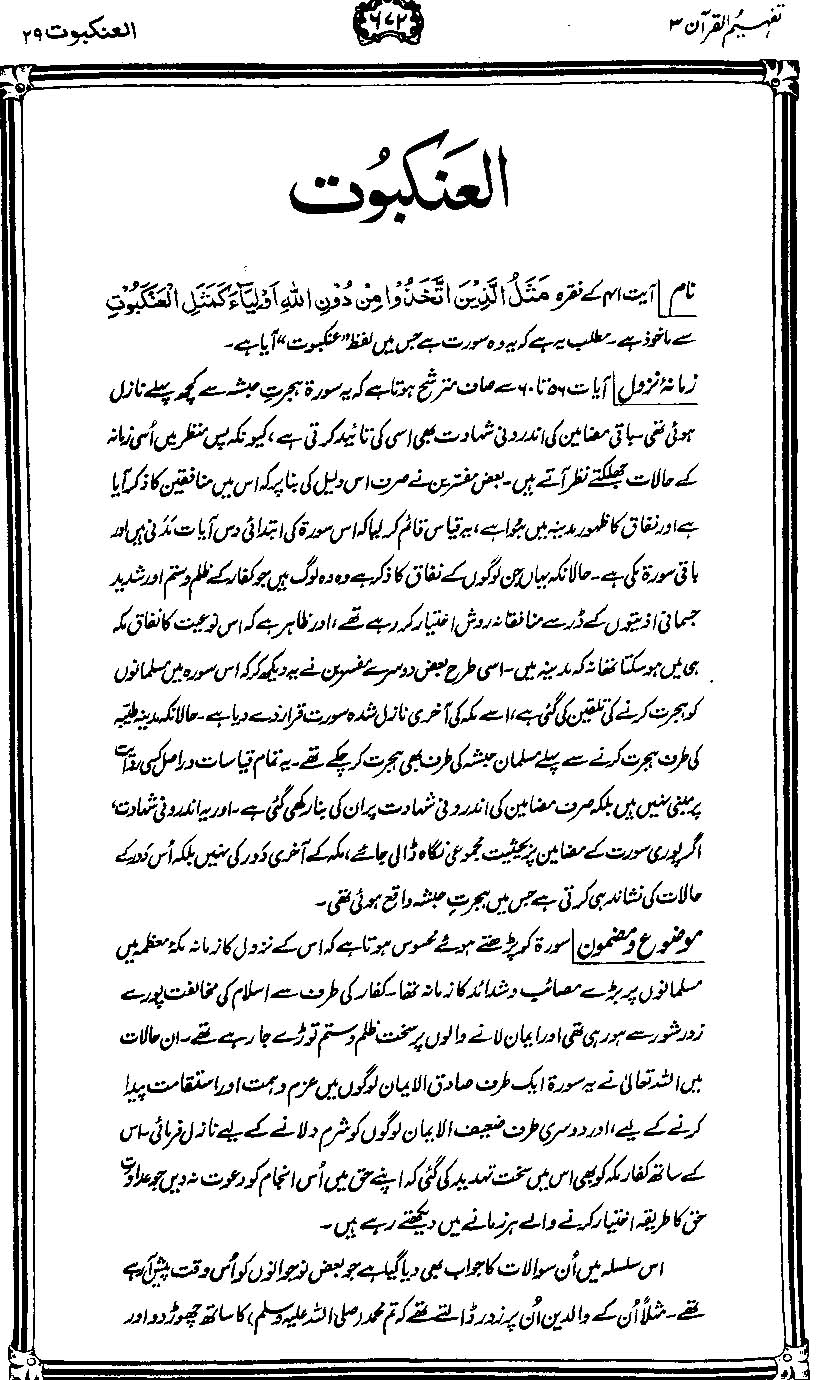 تفہیم القرآن ۳
۶۷۲
العنکبوت ۲۹
العَنکبُوت
نام آیت ۴۱ کے فقرہ مَثَلُ الَّذِیْنَ اتَّخَذُوْا مِنْ دُوْنِ اللہِ اَوْلِیَآءَ کَمَثَلِ الْعَنْکَبُوْتِ
سے ماخوذ ہے۔ مطلب یہ ہے کہ یہ وہ سورت ہے جس میں لفظ ”عنکبوت“ آیا ہے۔
زمانۂ نزول آیات ۵۶ تا ۶۰ سے صاف مترشح ہوتا ہے کہ یہ سورۃ ہجرتِ حبشہ سے کچھ پہلے نازل
ہوئی تھی۔ باقی مضامین کی اندرونی شہادت بھی اسی کی تائید کرتی ہے، کیونکہ پس منظر میں اُسی زمانہ
کے حالات جھلکتے نظر آتے ہیں۔ بعض مفسّرین نے صرف اس دلیل کی بنا پر کہ اس میں منافقین کا ذکر آیا
ہے اور نفاق کا ظہور مدینہ میں ہُوا ہے، یہ قیاس قائم کر لیا کہ اس سورۃ کی ابتدائی دس آیات مَدَنی ہیں اور
باقی سورۃ مکی ہے۔ حالانکہ یہاں جن لوگوں کے نفاق کا ذکر ہے وہ وہ لوگ ہیں جو کفار کے ظلم و ستم اور شدید
جسمانی اذیتوں کے ڈر سے منافقانہ روش اختیار کر رہے تھے، اور ظاہر ہے کہ اس نوعیت کا نفاق مکہ
ہی میں ہو سکتا تھا نہ کہ مدینہ میں۔ اسی طرح بعض دوسرے مفسرین نے یہ دیکھ کر کہ اس سورہ میں مسلمانوں
کو ہجرت کرنے کی تلقین کی گئی ہے، اسے مکہ کی آخری نازل شدہ سورت قرار دے دیا ہے۔ حالانکہ مدینہ طیبہ
کی طرف ہجرت کرنے سے پہلے مسلمان حبشہ کی طرف بھی ہجرت کر چکے تھے۔ یہ تمام قیاسات دراصل کسی روایت
پر مبنی نہیں ہیں بلکہ صرف مضامین کی اندرونی شہادت پر ان کی بنا رکھی گئی ہے۔ اور یہ اندرونی شہادت،
اگر پوری سورت کے مضامین پر بحیثیت مجموعی نگاہ ڈالی جائے، مکہ کے آخری دَور کی نہیں بلکہ اُس دَور کے
حالات کی نشاندہی کرتی ہے جس میں ہجرتِ حبشہ واقع ہوئی تھی۔
موضوع و مضمون سورۃ کو پڑھتے ہوئے محسوس ہوتا ہے کہ اس کے نزول کا زمانہ مکۂ معظمہ میں
مسلمانوں پر بڑے مصائب و شدائد کا زمانہ تھا۔ کفار کی طرف سے اسلام کی مخالفت پورے
زور شور سے ہو رہی تھی اور ایمان لانے والوں پر سخت ظلم و ستم توڑے جا رہے تھے۔ ان حالات
میں اللہ تعالیٰ نے یہ سورۃ ایک طرف صادق الایمان لوگوں میں عزم و ہمت اور استقامت پیدا
کرنے کے لیے، اور دوسری طرف ضعیف الایمان لوگوں کو شرم دلانے کے لیے نازل فرمائی۔ اس
کے ساتھ کفار مکہ کو بھی اس میں سخت تہدید کی گئی کہ اپنے حق میں اُس انجام کو دعوت نہ دیں جو عداوت
حق کا طریقہ اختیار کرنے والے ہر زمانے میں دیکھتے رہے ہیں۔
اس سلسلہ میں اُن سوالات کا جواب بھی دیا گیا ہے جو بعض نوجوانوں کو اُس وقت پیش آ رہے
تھے۔ مثلاً اُن کے والدین اُن پر زور ڈالتے تھے کہ تم محمد (صلی اللہ علیہ وسلم) کا ساتھ چھوڑ دو اور